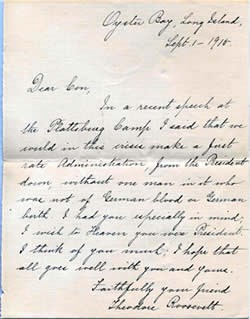 Oyster Bay, Long Island,
Sept. 1 - 1918
Dear Con,
In a recent speech at
the Plattsburg Camp I said that we
could in this crisis make a first
rate Administration from the President
down, without one man in it who
was not of German blood or German
birth. I had you especially in mind;
I wish to Heaven you were President.
I think of you much; I hope that
all goes well with you and yours.
Faithfully your friend
Theodore Roosevelt.